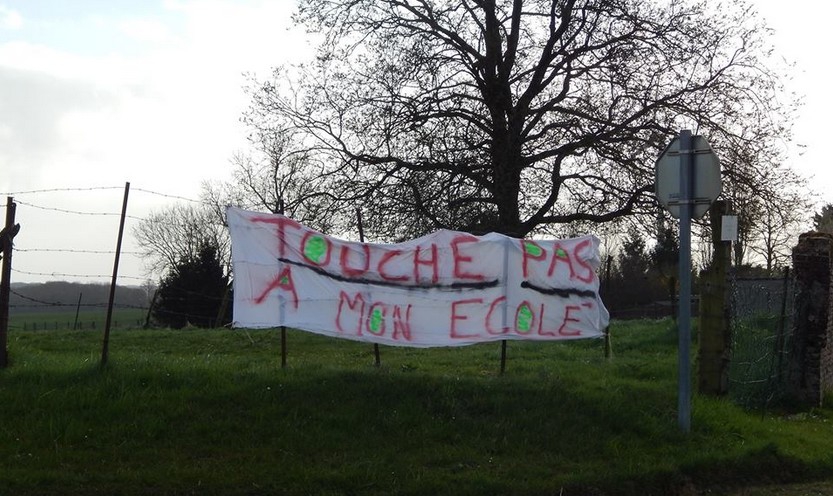 TOUCHE PAS
A MON ECOLE